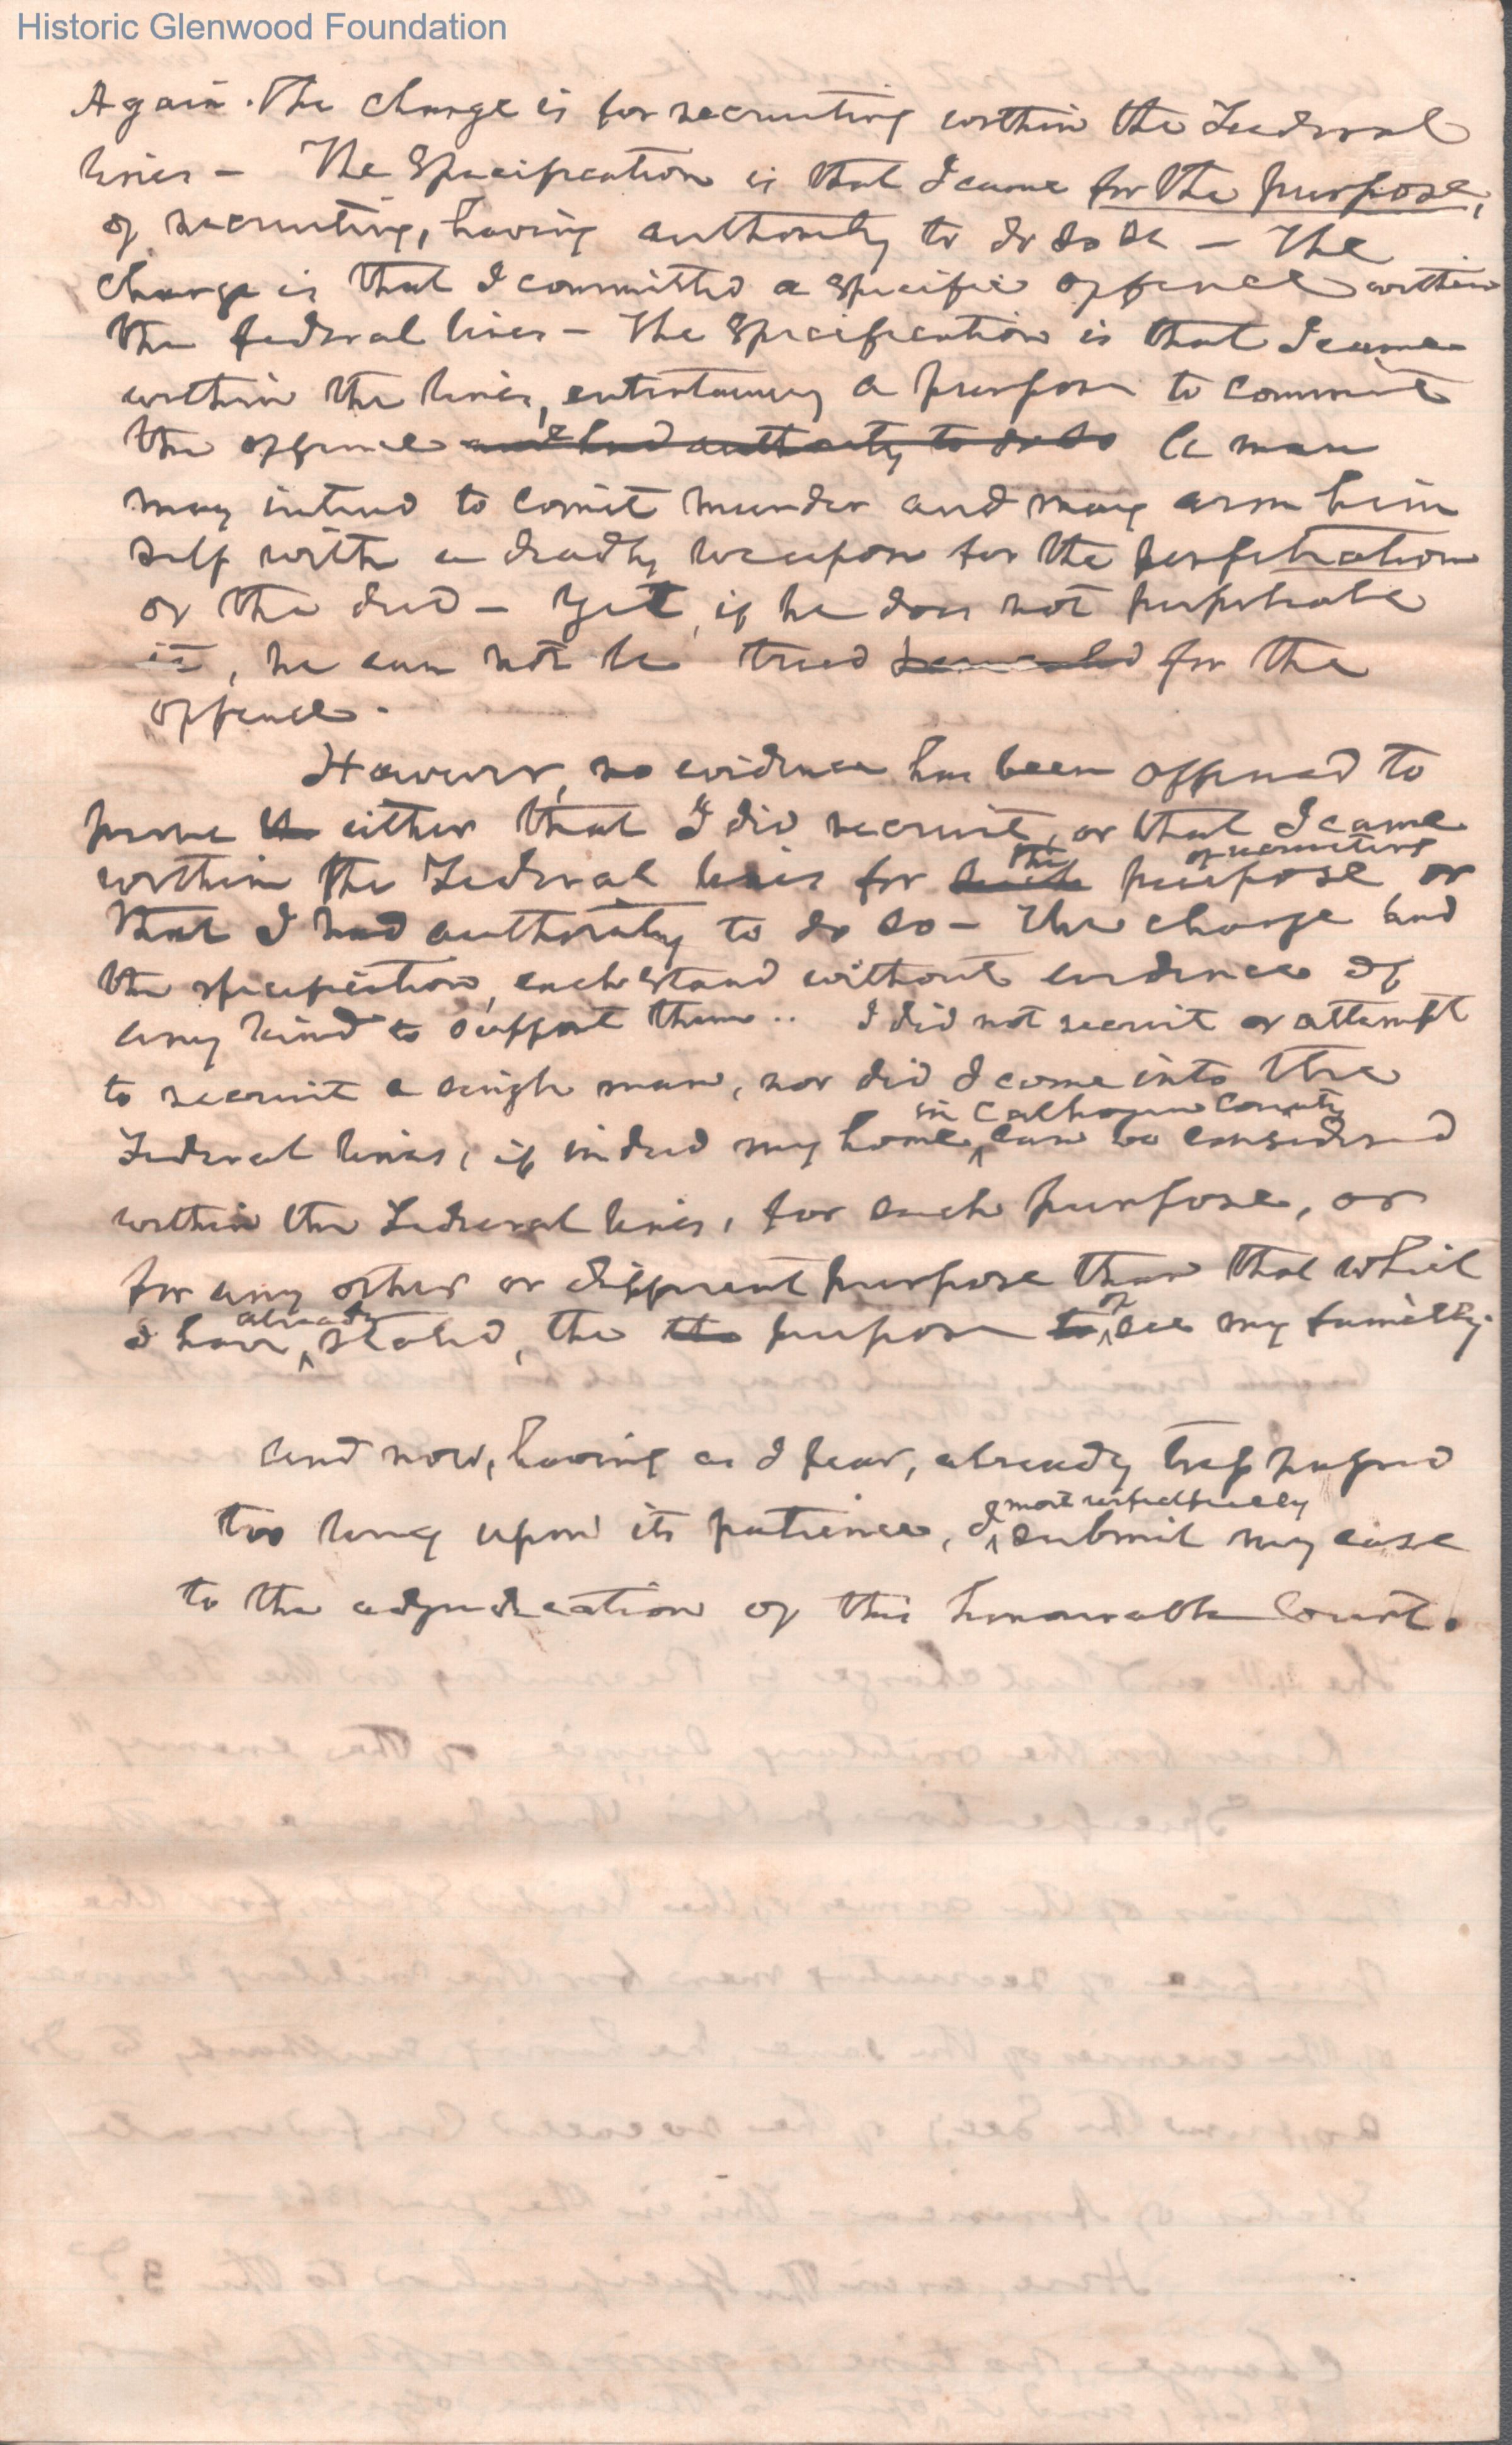 Historic Glenwood Foundation
Again. The charge is for recruiting within the Federal
lines - The Specification is that I came for the purpose,
of recruiting, having authority to do so - The
charge is that I committed a specific offence within
the federal lines - The Specification is that I came
within the lines, entertaining a purpose to commit
the offence and had authority to do so A man
may intend to comit murder and may arm him
self with a deadly weapon for the perpetration
of the deed - Yet, if he does not perpetrate
it, he can not be tried for the
offence.
However, no evidence has been offered to
prove the either that I did recruit, or that I came
the of recruiting
within the Federal lines for such purpose or
that I had authority to do so - The charge and
the specification, each stand without evidence of
any kind to support them.. I did not recruit or attempt
to recruit a single man, nor did I come into the
in Calhoun County
Federal lines, if indeed my home, can be considered
within the Federal lines, for such purpose, or
for any other or different purpose than that which
already of
I have stated, the the purpose to see my family.
And now, having as I fear, already trespassed
most respectfully
too long upon its patience, I submit my case
to the adjudication of this honourable Court.